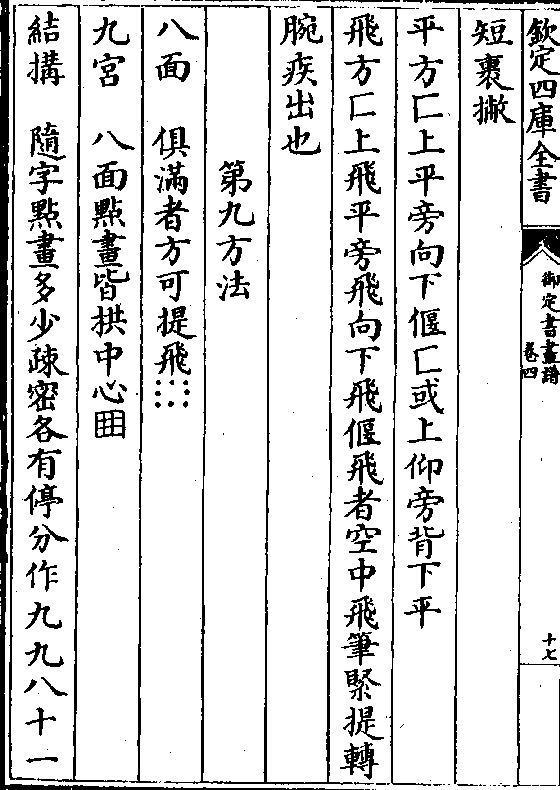 欽定四庫全書
御定書畫譜
卷四
十七
短裹撇
平方匚上平旁向下偃匚或上仰旁背下平
飛方匚上飛平旁飛向下飛偃飛者空中飛筆緊提轉
腕疾出也
第九方法
八面 俱滿者方可提飛
九宮 八面點畫皆拱中心
結搆 隨字點畫多少疎密各有停分作九九八十一